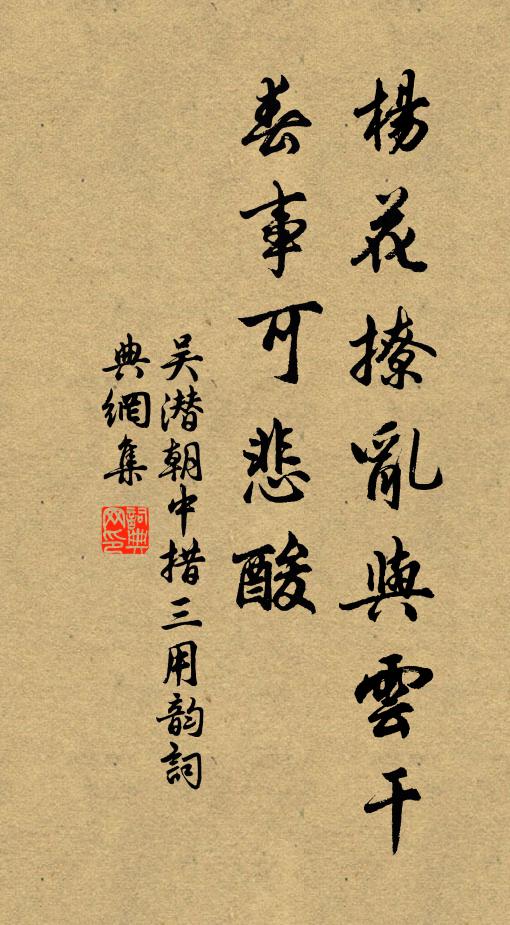 楊花撩亂與雲干
春事可悲酸
吴潛朝中措三用韵詞
典網集
詞典網印